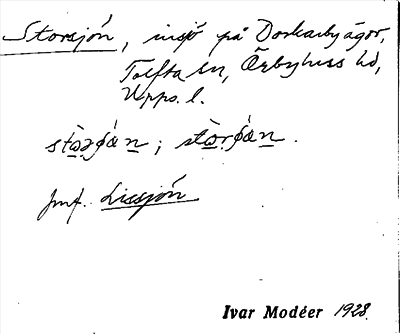 Storsjön, insjö på Dorkarby ägor,
Tolfta sn, Örbyhus hd,
Upps. l.
jmf. Lissjön
Ivar Modéer 1928.